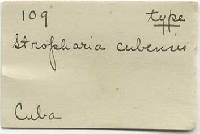 109 type
Stropharia cubensis
Cuba